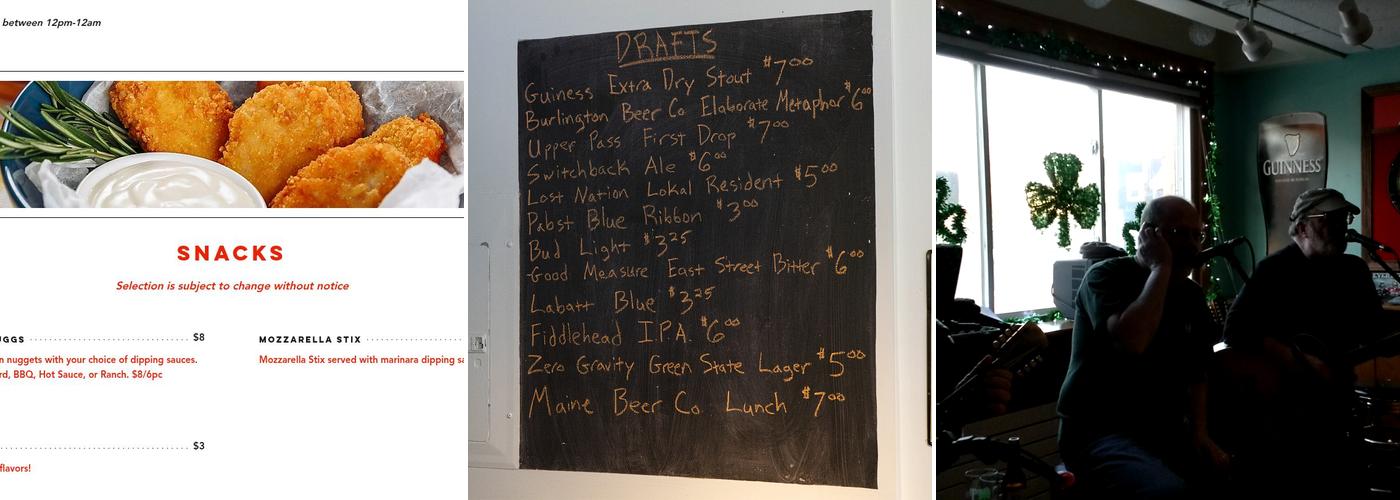 between 12pm-12am
SNACKS
Selection is subject to change without notice
UGGS $8
n nuggets with your choice of dipping sauces.
rd, BBQ, Hot Sauce, or Ranch. $8/6pc
MOZZARELLA STIX
Mozzarella Stix served with marinara dipping sa
$3
flavors!
DRAFTS
Guiness Extra Dry Stout $7.00
Burlington Beer Co. Elaborate Metaphor $6.00
Upper Pass First Drop $7.00
Switchback Ale $6.00
Lost Nation Lokal Resident $5.00
Pabst Blue Ribbon $3.00
Bud Light $3.25
Good Measure East Street Bitter $6.00
Labatt Blue $3.25
Fiddlehead I.P.A. $6.00
Zero Gravity Green State Lager $5.00
Maine Beer Co. Lunch $7.00
GUINNESS